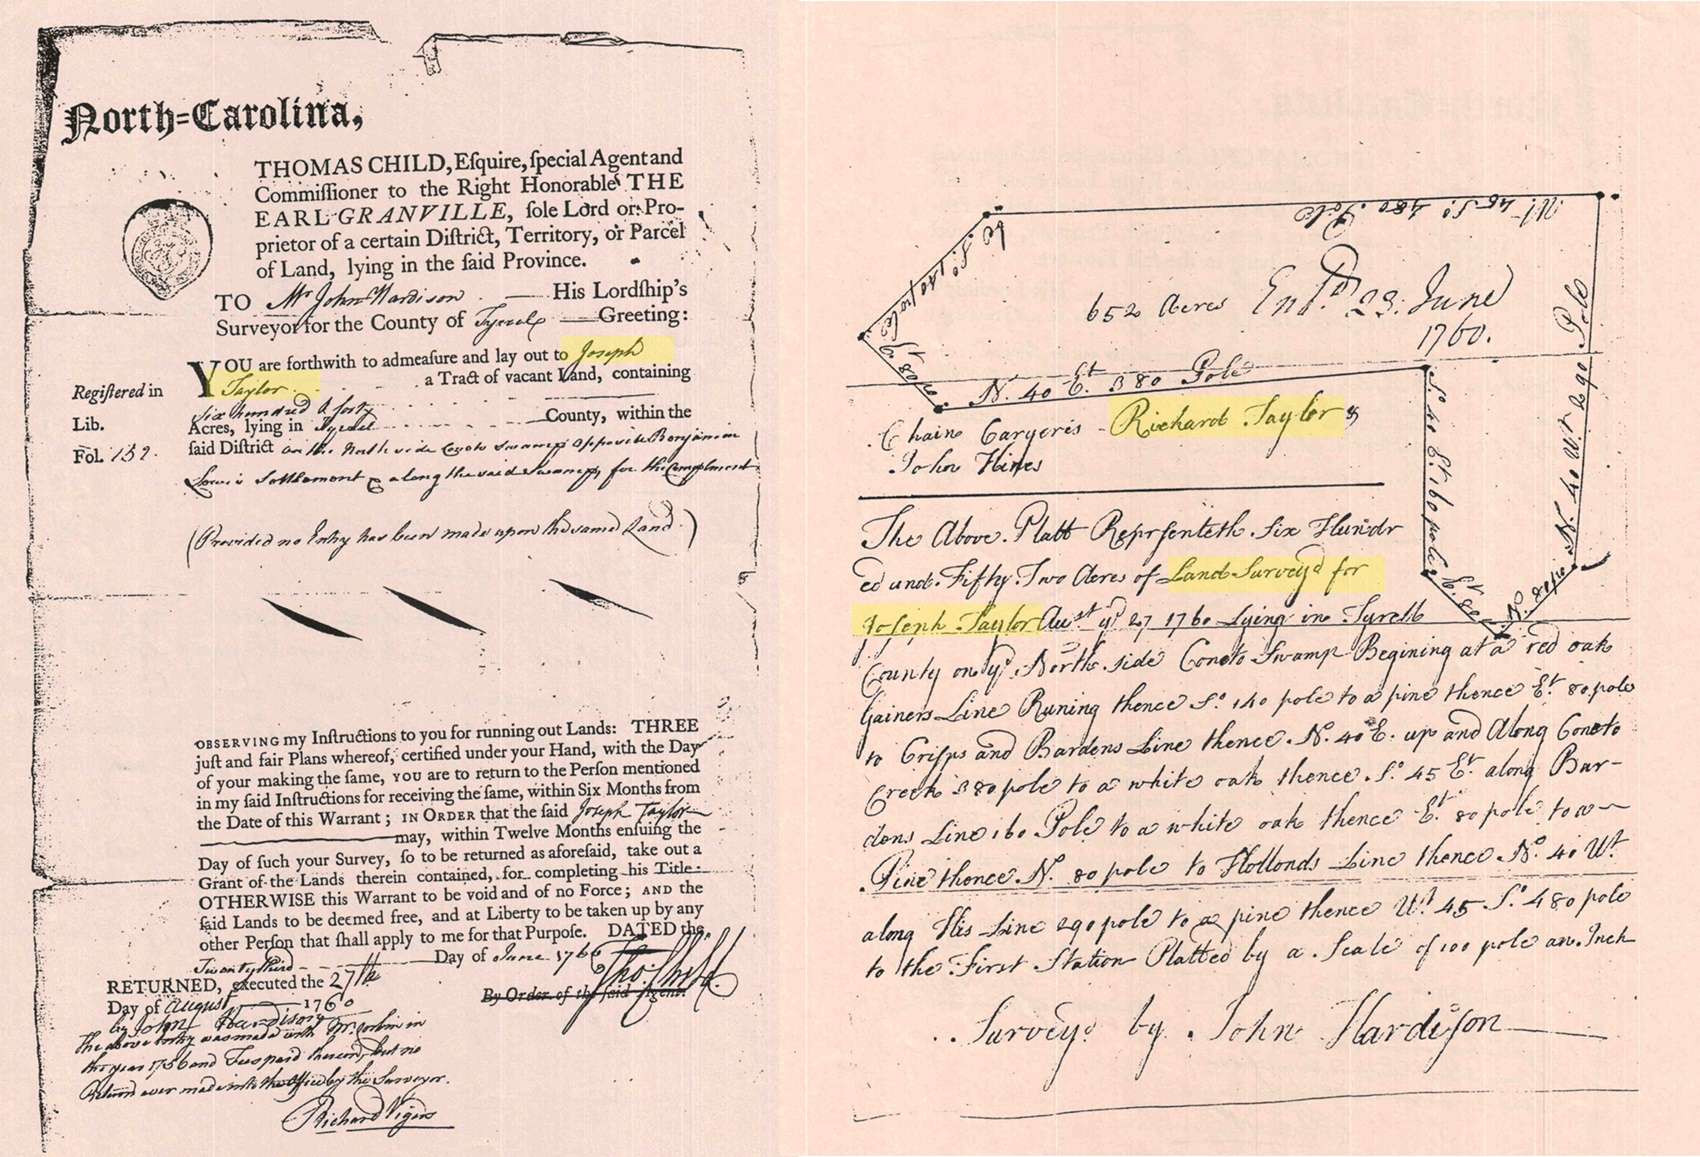 North=Carolina,
THOMAS CHILD, Eſquire, ſpecial Agent and
Commiſſioner to the Right Honorable THE
EARL GRANVILLE, ſole Lord or Pro-
prietor of a certain Diſtrict, Territory, or Parcel
of Land, lying in the ſaid Province.
TO Mr John Hardison His Lordſhip's
Surveyor for the County of Tyrrel Greeting:
YOU are forthwith to admeaſure and lay out to Joseph
Taylor a Tract of vacant Land, containing
Six hundred & forty
Acres, lying in Tyrrel County, within the
ſaid Diſtrict on the North side Coneto Swamp Opposite Benjamin
Settlement & along the said Swamp, for the Complment
Registered in
Lib.
Fol. 152.
(Provided no Entry has been made upon the same Land.)
OBSERVING my Inſtructions to you for running out Lands: THREE
juſt and fair Plans whereof, certified under your Hand, with the Day
of your making the ſame, YOU are to return to the Perſon mentioned
in my ſaid Inſtructions for receiving the ſame, within Six Months from
the Date of this Warrant; IN ORDER that the ſaid Joseph Taylor
may, within Twelve Months enſuing the
Day of ſuch your Survey, ſo to be returned as aforeſaid, take out a
Grant of the Lands therein contained, for completing his Title:
OTHERWISE this Warrant to be void and of no Force; AND the
ſaid Lands to be deemed free, and at Liberty to be taken up by any
other Perſon that ſhall apply to me for that Purpoſe. DATED the
Twenty third Day of June 1760
Thos Child.
By Order of the ſaid Agent.
RETURNED, executed the 27th
Day of August 1760
by John Hardison
the above Entry was made with Mr. Corbin in
the year 1756 and thereon, but no
Return ever made into the Office by the Surveyor.
Richard Vigers
Wt 45 So 480 Pole
So 140 pole
Et 80
652 Acres Entd 23. June
1760.
N. 40 Et 380 Pole
N. 40 Wt 290 Pole
S. 45 Et 160 pole
Et 80
No 80 po
Chaine Caryers Richard Taylor &
John Hines
The Above Platt Reprsenteth Six Hundr
ed and Fifty Two Acres of Land Surveyd for
Joseph Taylor Aust ye 27 1760 Lying in Tyrell
County on ye North side Coneto Swamp Begining at a red oak
Gainers Line Runing thence So 140 pole to a pine thence Et 80 pole
to Crisps and Bardens Line thence N. 40 E. up and Along Coneto
Creek 380 pole to a white oak thence So 45 Et along Bar-
dens Line 160 Pole to a white oak thence Et 80 pole to a
Pine thence N. 80 pole to Hollonds Line thence No 40 Wt
along His Line 290 pole to a pine thence Wt 45 So 480 pole
to the First Station Platted by a Scale of 100 pole an Inch
Surveyd by John Hardison